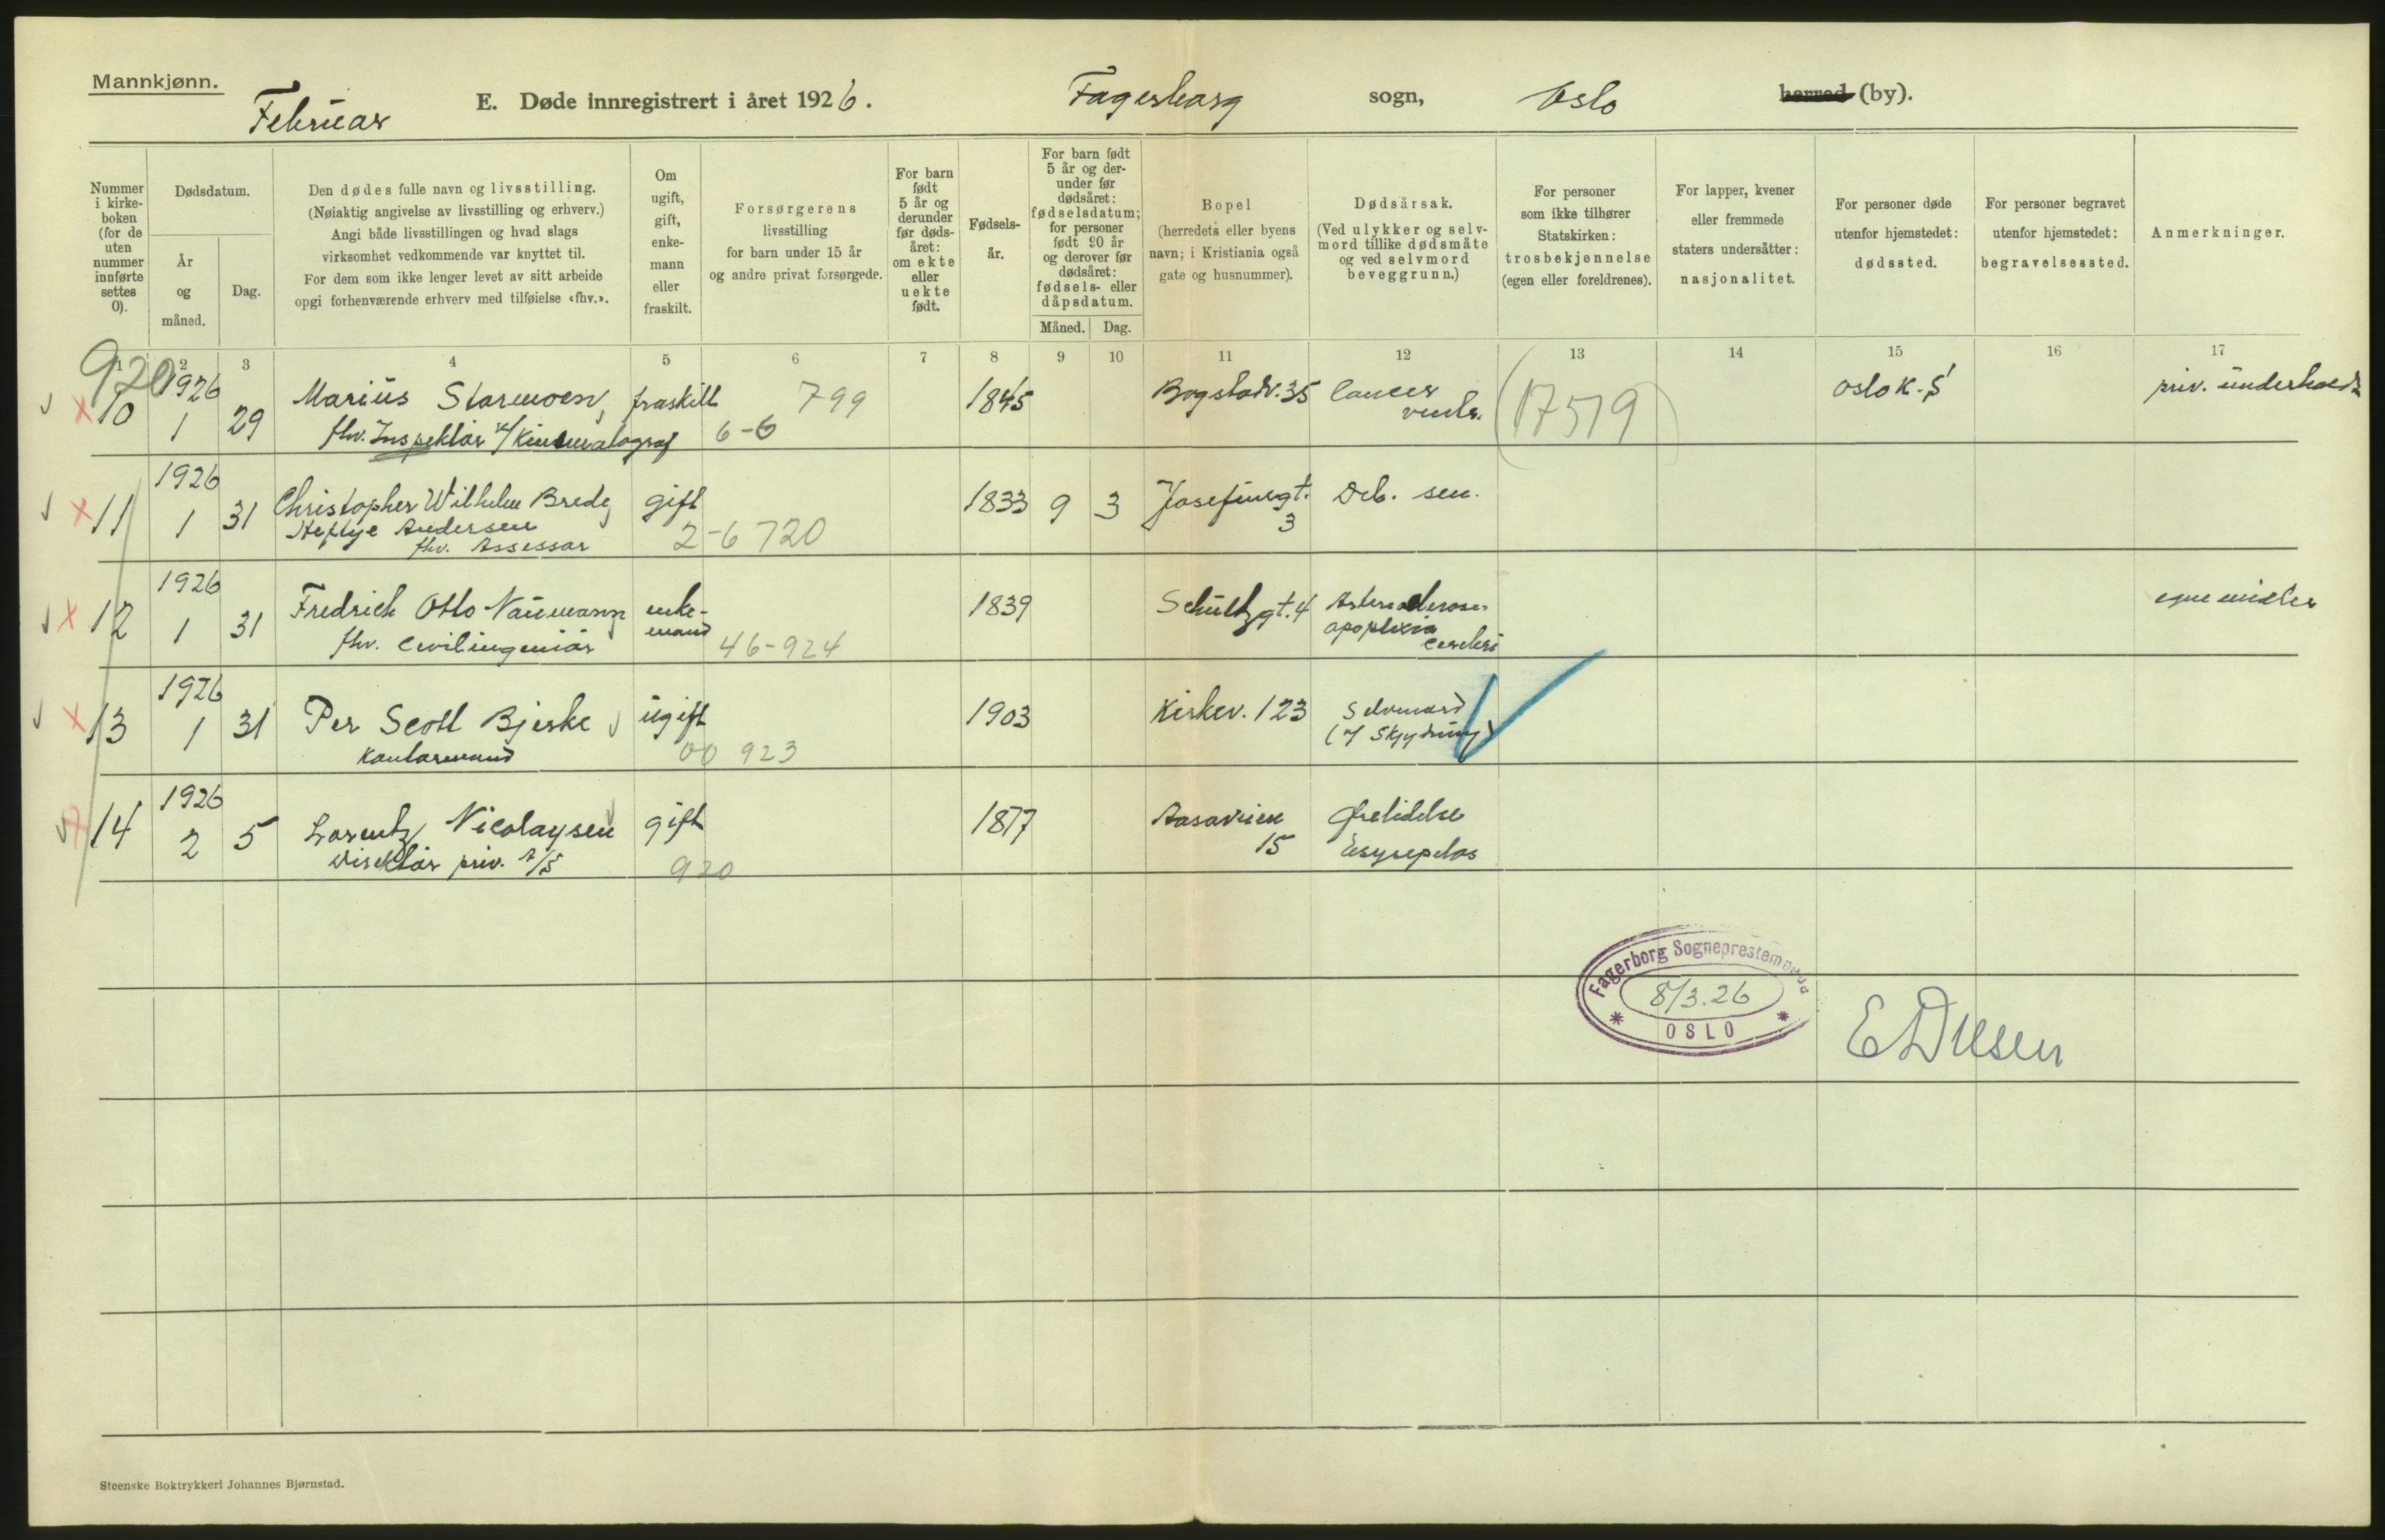 Mannkjønn.
Februar
E. Døde innregistrert i året 1926.
Fagerborg sogn, Oslo herred (by).
Nummer i kirkeboken (for de uten nummer innførte settes 0).
Dødsdatum.
År og måned.
Dag.
Den dødes fulle navn og livsstilling.
(Nøiaktig angivelse av livsstilling og erhverv.)
Angi både livsstillingen og hvad slags
virksomhet vedkommende var knyttet til.
For dem som ikke lenger levet av sitt arbeide
opgi forhenværende erhverv med tilføielse «fhv.».
Om ugift, gift, enkemann eller fraskilt.
Forsørgerens
livsstilling
for barn under 15 år
og andre privat forsørgede.
For barn født 5 år og derunder før dødsåret: om ekte eller uekte født.
Fødselsår.
For barn født 5 år og derunder før dødsåret: fødselsdatum; for personer født 90 år og derover før dødsåret: fødsels- eller dåpsdatum.
Måned. Dag.
Bopel
(herredets eller byens
navn; i Kristiania også
gate og husnummer).
Dødsårsak.
(Ved ulykker og selvmord tillike dødsmåte
og ved selvmord
beveggrunn.)
For personer
som ikke tilhører
Statskirken:
trosbekjennelse
(egen eller foreldrenes).
For lapper, kvener
eller fremmede
staters undersåtter:
nasjonalitet.
For personer døde
utenfor hjemstedet:
dødssted.
For personer begravet
utenfor hjemstedet:
begravelsessted.
Anmerkninger.
1 2 3 4 5 6 7 8 9 10 11 12 13 14 15 16 17
920
10 1926 1 29 Marius Stormoen, fraskilt 799 1845 Bogstadv. 35 Cancer ventr. (17519) Oslo K. S. priv. underholdt
fhv. Inspektør v/ Kinematograf 6-6
11 1926 1 31 Christopher Wilhelm Brede gift 1833 9 3 Josefinegt. 3 Deb. sen.
Heftye Andersen
fhv. Assessor 2-6 720
12 1926 1 31 Fredrich Otto Naumann enkemand 1839 Schultzgt. 4 apoplexia cerebri egne midler
fhv. Civilingeniør 46-924
13 1926 1 31 Per Scott Bjerke ugift 1903 Kirkev. 123 Selvmord
Kontormand 00 923 (v/ Skydning)
14 1926 2 5 Lorentz Nicolaysen gift 1877 Aasaveien 15 Ørelidelse
Direktør priv. A/S 920 Erysepelas
Fagerborg Sogneprestembede
8/3.26
OSLO
Steenske Boktrykkeri Johannes Bjørnstad.